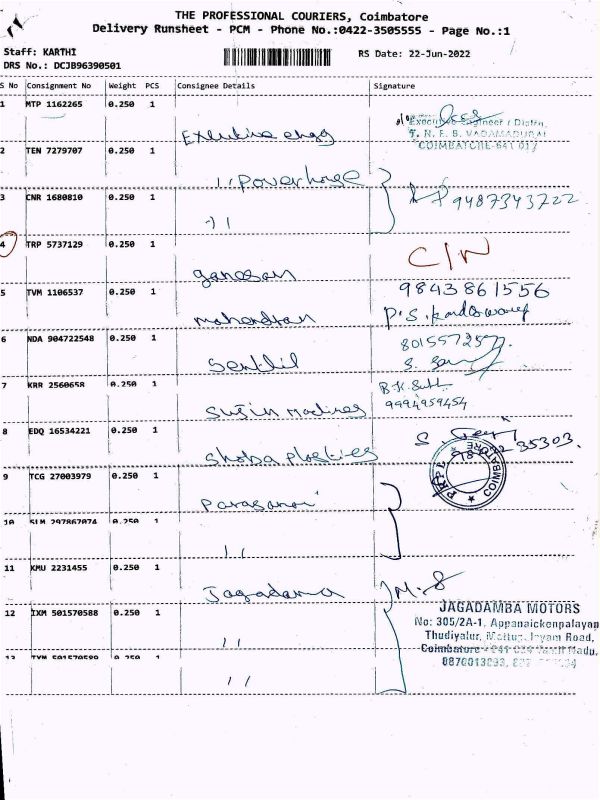 THE PROFESSIONAL COURIERS, Coimbatore
Delivery Runsheet - PCM - Phone No.:0422-3505555 - Page No.:1
Staff: KARTHI
RS Date: 22-Jun-2022
DRS No.: DCJB96390501
S No Consignment No Weight PCS Consignee Details Signature
1 MTP 1162265 0.250 1
Executive Engineer / Distn.
T. N. E. B. VADAMADURAI
COIMBATORE-641 017
2 TEN 7279707 0.250 1
,, Powerhouse
3 CNR 1680810 0.250 1
9487343722
,,
4 TRP 5737129 0.250 1
C/N
ganesan
5 TVM 1106537 0.250 1
9843861556
mahendran
6 NDA 904722548 0.250 1
Senthil
7 KRR 2560658 0.250 1
9994959454
8 EDQ 16534221 0.250 1
35303
Shoba plastics
9 TCG 27003979 0.250 1
10 SLM 297867074 0.250 1
,,
11 KMU 2231455 0.250 1
Jagadama
M.S
12 IXM 501570588 0.250 1
,,
JAGADAMBA MOTORS
No: 305/2A-1, Appanaickenpalayam
Thudiyalur, Mettupalayam Road,
13 TVM 501570589 0.250 1
,,